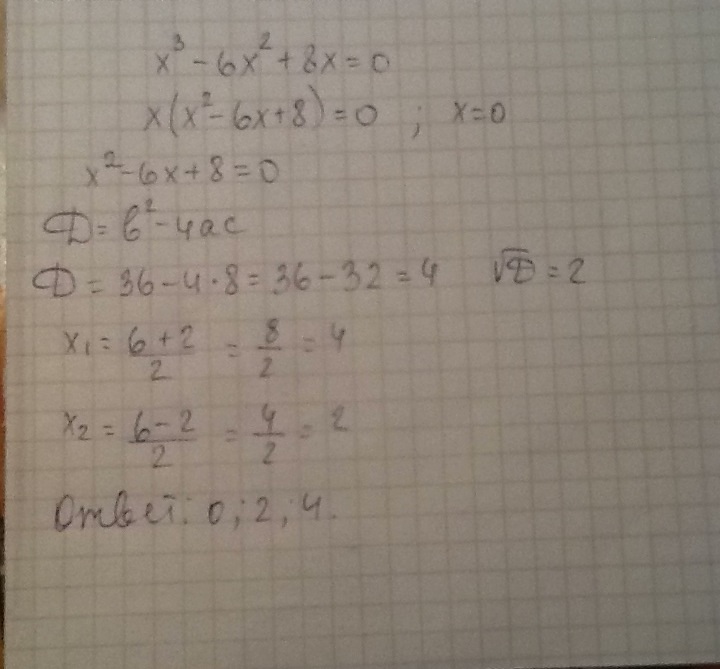 x³ - 6x² + 8x = 0
x(x² - 6x + 8) = 0 ; x = 0
x² - 6x + 8 = 0
D = b² - 4ac
D = 36 - 4·8 = 36 - 32 = 4 √D = 2
x₁ = (6 + 2)/2 = 8/2 = 4
x₂ = (6 - 2)/2 = 4/2 = 2
Ответ: 0; 2; 4.